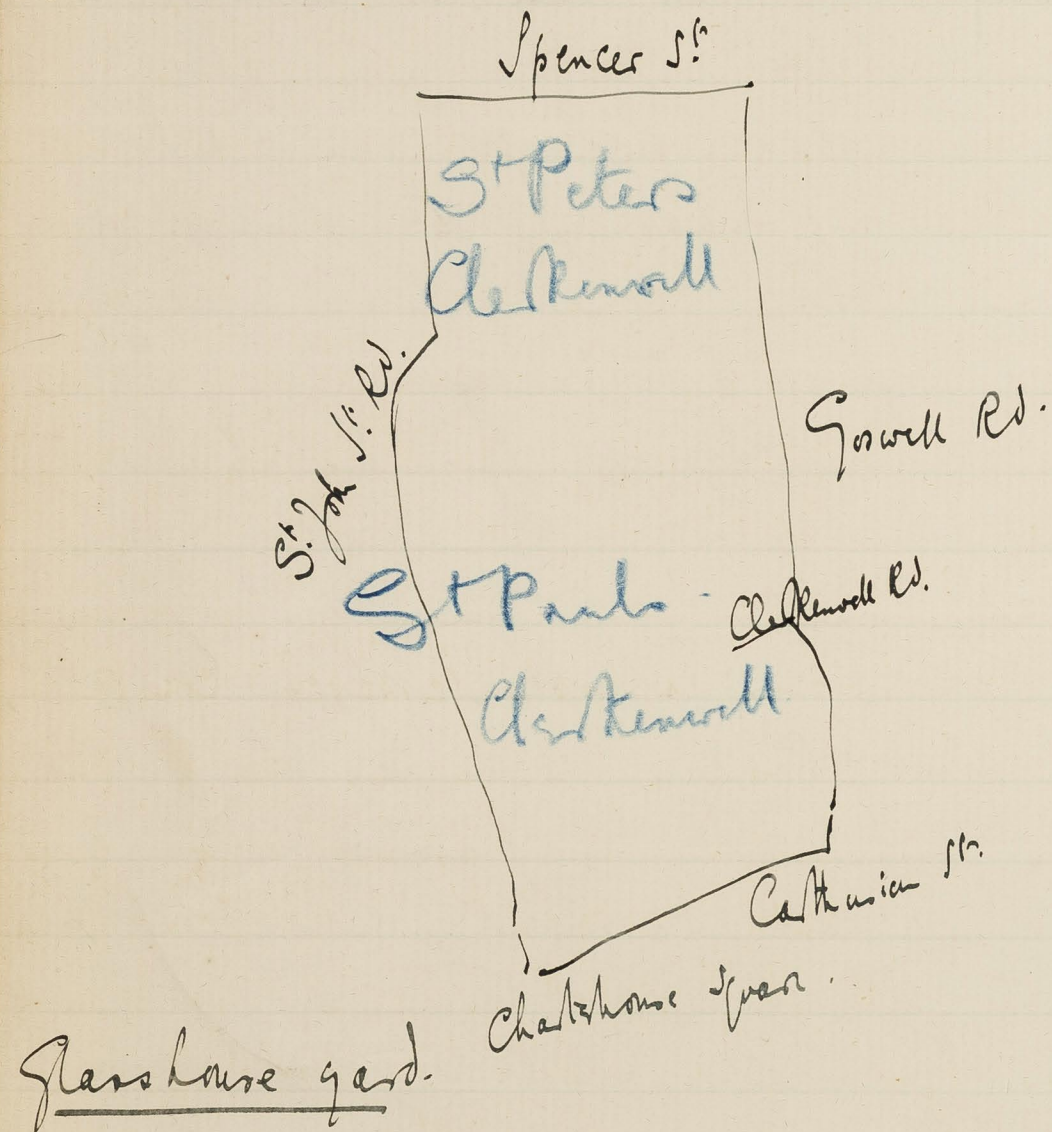 Spencer St.
St Peters
Clerkenwell
St. John St. Rd.
Goswell Rd.
St Pauls
Clerkenwell Rd.
Clerkenwell
Carthusian St.
Charterhouse Square.
Glasshouse yard.